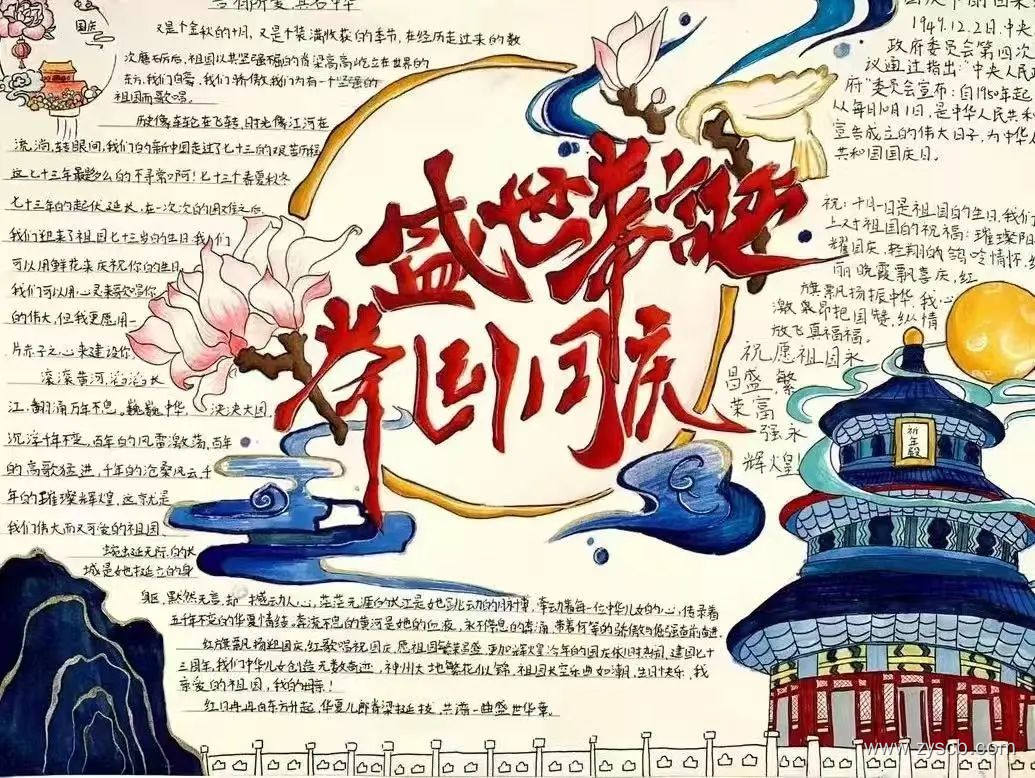 吾有所爱 其名中华
国庆
又是个金秋的十月,又是个装满收获的季节,在经历走过来的数
次磨石历后,祖国以其坚强的脊梁高高屹立在世界的
东方,我们自豪,我们骄傲,我们为有一个坚强的
祖国而歌唱。
历史像车轮在飞转,时光像江河在
流淌,转眼间,我们的新中国走过了七十三的艰苦历程
这七十三年最多么的不寻常啊!七十三个春夏秋冬
七十三年的起伏延长,在一次次的困难之后,
我们迎来了祖国七十三岁的生日,我们
可以用鲜花来庆祝你的生日
我们可以用心灵来歌唱你
的伟大,但我更愿用一
片赤子之心来建设你
滚滚黄河,滔滔长
江,翻涌万年不息。巍巍中华 泱泱大国,
沉浮千年不变,百年的风雷激荡,百年
的高歌猛进,千年的沧桑风云,千
年的璀璨辉煌,这就是
我们伟大而又可爱的祖国,
蜿蜒无际的长
城是她挺立的身
躯,默然无言,却撼动人心,茫茫无涯的长江是她
五千年不变的华夏情结,奔流不息的黄河是她的血液,永不停息的奔涌,带着何等的骄傲与倔强奋前进.
红旗飘扬迎国庆,红歌唱祝国庆,愿祖国繁荣昌盛,更加辉煌,今年的国庆依旧热闹,建国七十
三周年,我们中华儿女创造无数奇迹,神州大地繁花似锦,祖国长空乐曲如潮,生日快乐,我
亲爱的祖国,我的母亲!
红日冉冉自东方升起,华夏儿郎脊梁挺拔,共谱一曲盛世华章。
盛世华诞
举国同庆
1949.12.2日,中央
政府委员会第四次
议通过指出:“中央人民
府”委员会宣布:自1950年起
从每日10月1日,是中华人民共和
宣告成立的伟大日子,为中华人
共和国国庆日。
祝:十月一日是祖国的生日,我们
上对祖国的祝福:璀璨阳
耀国庆,轻翔的鸽吟情怀,绚
丽晚霞飘喜庆,红
旗飘扬振中华,我心
激昂把国赞,纵情
放飞真福福。
祝愿祖国永
昌盛,繁
荣富
强永
辉煌
祈年殿
www.zyscp.com